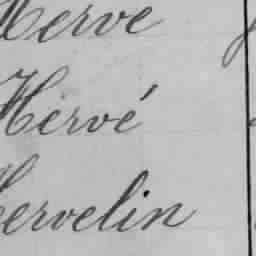 Herve
Hervé
Hervelin